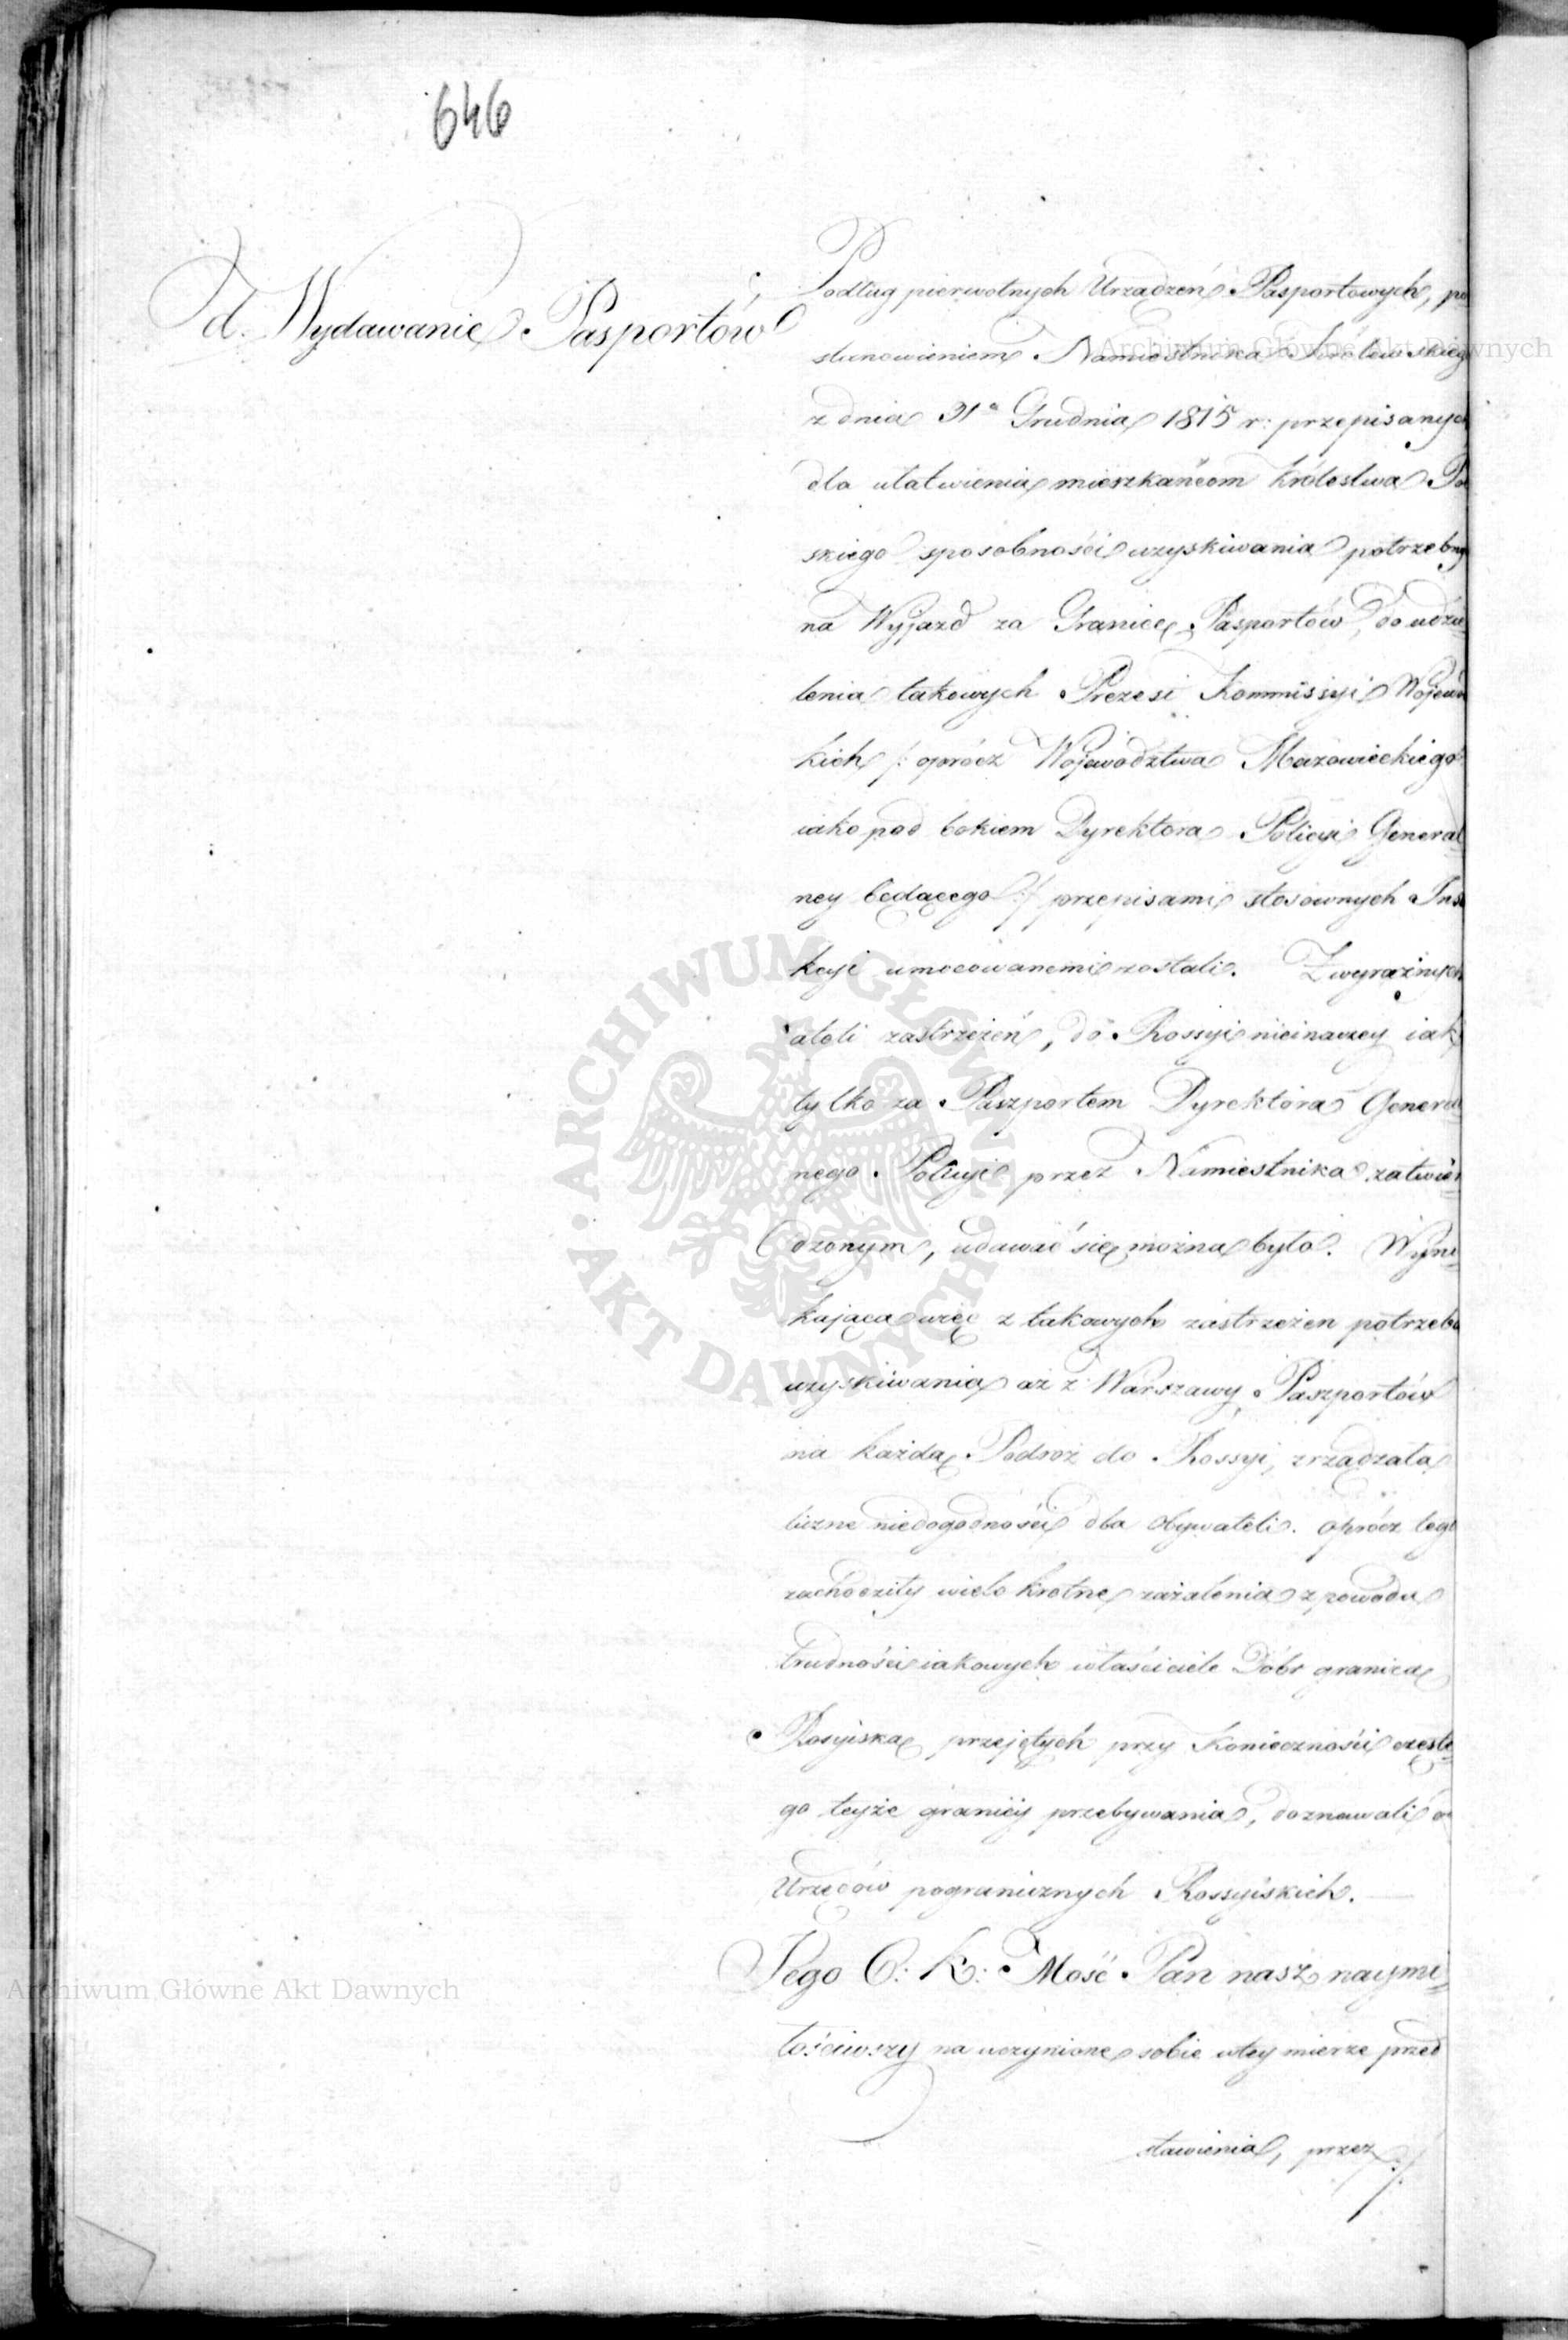 646
d. Wydawanie Pasportów
Podług pierwotnych Urządzeń Pasportowych, po
stanowieniem Namiestnika Królewskieg
z dnia 31º Grudnia 1815 r: przepisanych
dla ułatwienia mieszkańcom Królestwa Pol
skiego sposobności uzyskiwania potrzebny
na Wyjazd za Granicę Pasportów, do udzie=
lenia takowych Prezesi Kommissyi Wojewó
kich /: oprócz Województwa Mazowieckiego
iako pod bokiem Dyrektora Policyi General=
ney będącego :/ przepisami stosownych Ins
kcyi umocowanemi zostali. Z wyraźnych
atoli zastrzeżeń, do Rossyi nieinaczey iak
tylko za Paszportem Dyrektora General
nego Policyi przez Namiestnika zatwier=
dzonym, udawać się można było. Wyni=
kająca więc z takowych zastrzeżen potrzeba
uzyskiwania aż z Warszawy Paszportów
na każdą Podroż do Rossyi, zrządzała
liczne niedogodności dla Obywateli. Oprócz tego
zachodziły wielo krotne zażalenia z powodu
trudności iakowych właściciele Dóbr granicą
Rosyiską przejętych przy Konieczności częste=
go teyże granicy przebywania, doznawali o
Urzędów pogranicznych Rossyiskich.
Jego C: K: Mość Pan nasz naymi=
łościwszy na uczynione sobie w tey mierze przed
stawienia, przez ./.
Archiwum Główne Akt Dawnych
Archiwum Główne Akt Dawnych
ARCHIWUM GŁÓWNE AKT DAWNYCH